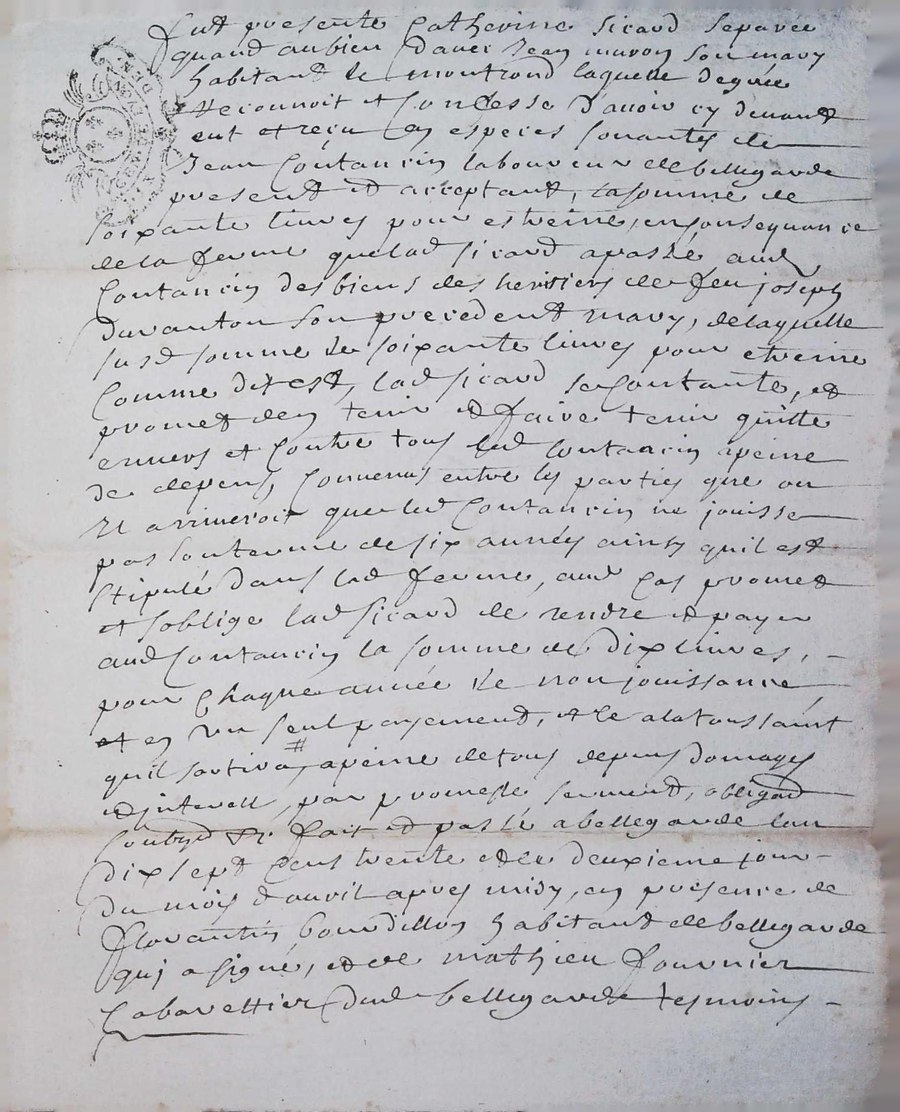 fut presente Catherine sicard separée
quand au bien davec Jean muron son mary
habitant de montrond laquelle de gré
reconnoit et Confesse davoir cy devant
eut et reçu en especes sonantes de
Jean Coutancin laboureur de bellegarde
present et acceptant, la somme de
soixante livres pour estreine, en Consequance
de la ferme que lad sicard a passé aud
Coutancin des biens des heritiers de feu joseph
duranton son precedent mary, de laquelle
susd somme de soixante livres pour etreine
Comme dit est, lad sicard se Contante, et
promet den tenir et faire tenir quitte
envers et Contre tous led Coutancin a peine
de depens, Convenus entre les parties que ou
Il arriveroit que led Coutancin ne jouisse
pas son terme de six années ainsy quil est
stipulé dans lad ferme, aud Cas promet
et soblige lad sicard de rendre et payer
aud Coutancin la somme de dix livres,
pour Chaque année de non jouissance
et en un seul payement, et ce a la toussaint
quil sortira, # a peine de tous depens domages
et interest, par promesse serment, obligaõn
fait et passé a bellegarde lan
dix sept Cens trente et le deuxieme jour
du mois davril apres midy, en presence de
florantin bourdillon habitant de bellegarde
qui a signé, et de mathieu fournier
Cabarettier dud bellegarde tesmoins